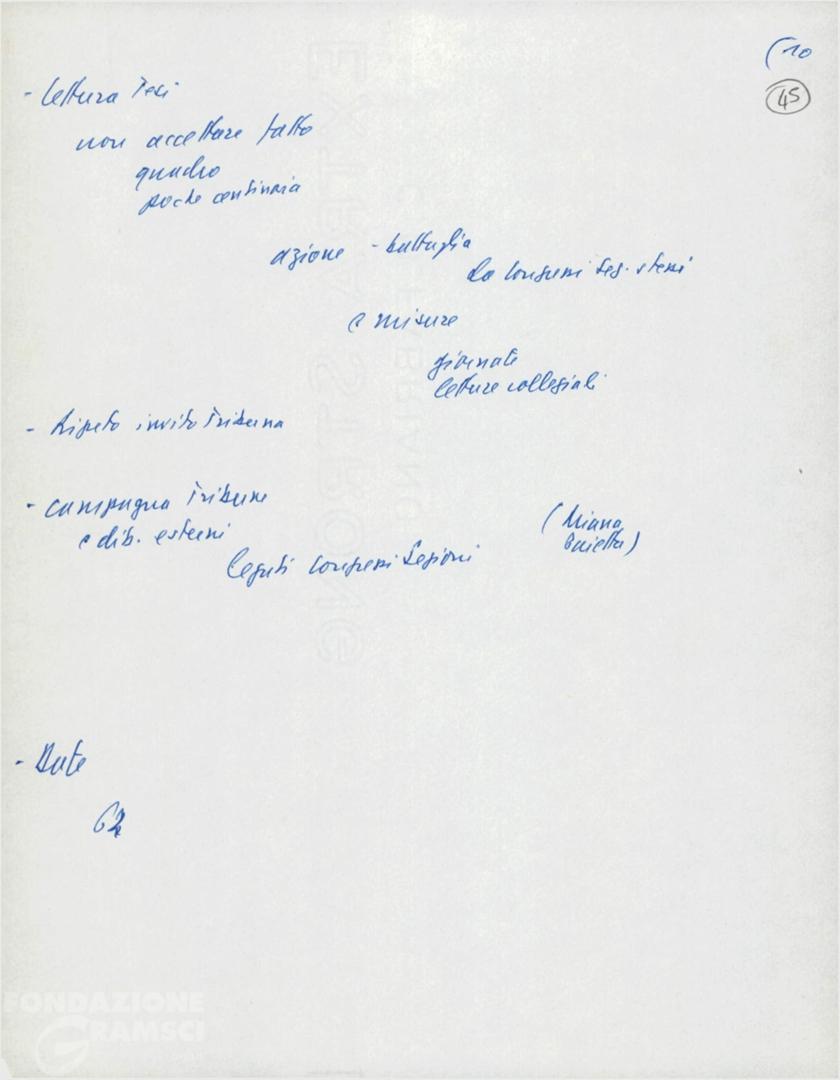 (10
45
- Lettura Tesi
non accettare fatto
quadro
poche centinaia
azione - battaglia
da Congressi Sez. stessi
e misure
giornate
letture collegiali
- Ripeto invito Tribuna
- Campagna Tribune
e dib. esterni
(Miana
legati Congressi Sezioni
- Date
62
FONDAZIONE
GRAMSCI